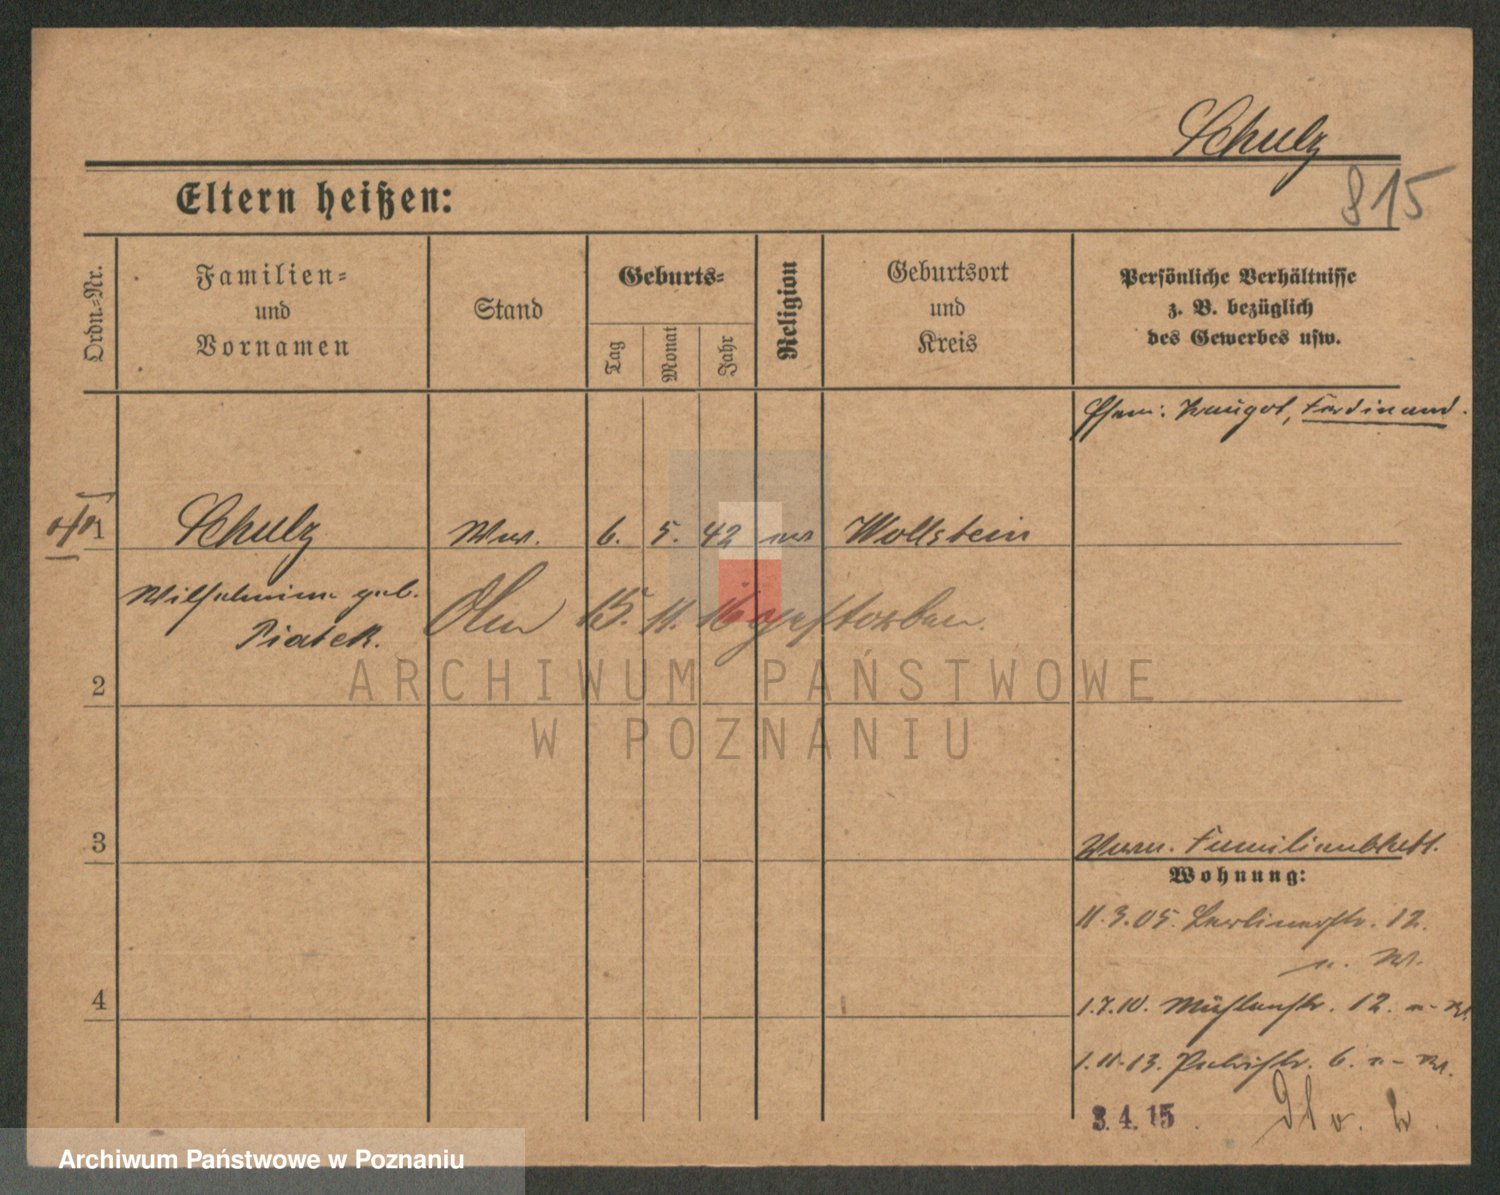 Schulz
815
Eltern heißen:
Ordn.-Nr.
Familien-
und
Vornamen
Stand
Geburts-
Tag
Monat
Jahr
Religion
Geburtsort
und
Kreis
Persönliche Verhältnisse
z. B. bezüglich
des Gewerbes usw.
Ehem: Traugot, Ferdinand.
1 Schulz Ww. 6. 5. 42 Wollstein
Wilhelmine geb.
Piatek.
Am 15. 11. 16 gestorben.
2
3
Familienblatt.
Wohnung:
11.3.05. Berlinerstr. 12.
4
1.7.10. Mühlenstr. 12.
1.10.13. Patristr. 6.
3.4.15
ARCHIWUM PAŃSTWOWE
W POZNANIU
Archiwum Państwowe w Poznaniu